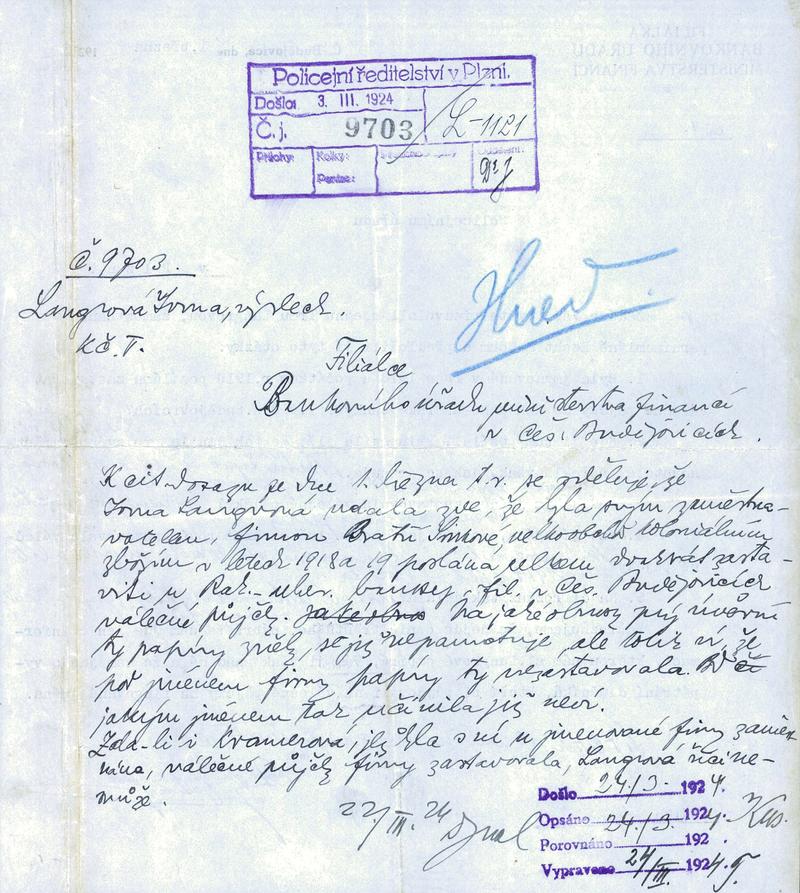 Policejní ředitelství v Plzni.
Došlo: 3. III. 1924
Č. j. 9703 L-1121
Přílohy: Kolky:
Peníze:
Č. 9703.
Langrová Irma, výslech.
Kč. V.
Hned
Filiálce
Bankovního úřadu ministerstva financí
v Čes. Budějovicích.
K cit. dotazu ze dne 1. března t. r. se sděluje, že
Irma Langrová udala zde, že byla svým zaměstna-
vatelem, firmou Bratří velkoobchod koloniálním
zbožím v letech 1918 a 19 poslána celkem dvakrát zasta-
viti u Rak.-uher. banky, fil. v Čes. Budějovicích
válečné půjčky. Na jaké obnosy prý úvěrní
ty papíry zněly, se již nepamatuje, ale tolik ví, že
pod jménem firmy papíry ty nezastavovala.
jakým jménem tak učinila již neví.
Zda-li i Kramerova, jež byla s ní u jmenované firmy zaměst-
nána, válečné půjčky firmy zastavovala, Langrová říci ne-
může.
22/III. 24
Došlo 24./3. 1924.
Opsáno 24./3. 1924.
Porovnáno 192 .
Vypraveno 24/III. 1924